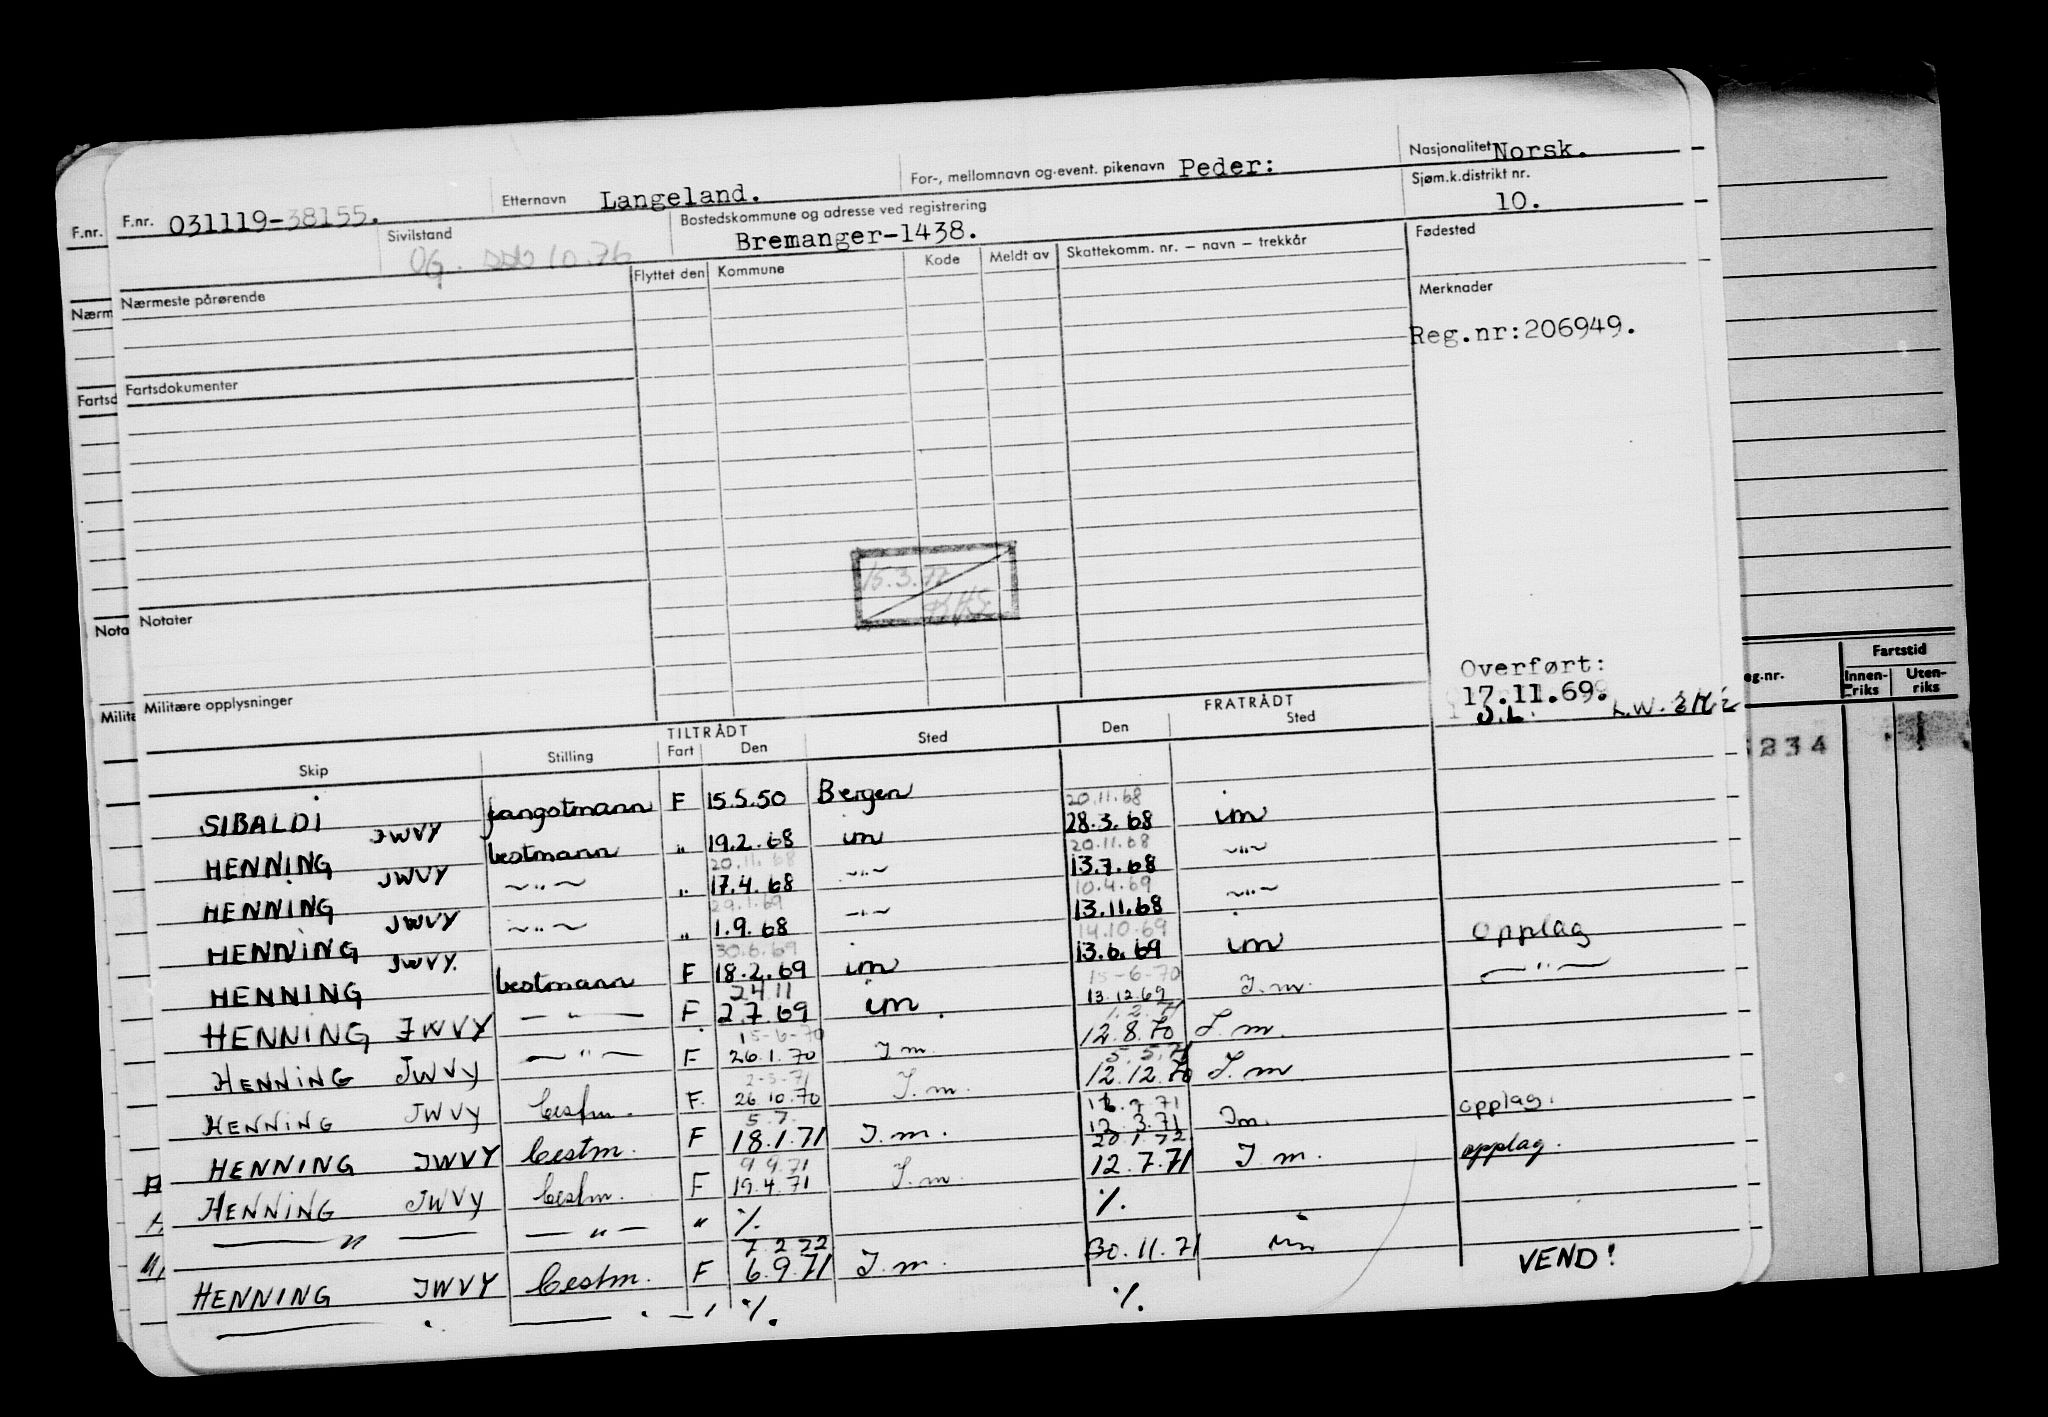 F.nr. 031119-38155. Etternavn Langeland. For-, mellomnavn og event. pikenavn Peder: Nasjonalitet Norsk.
Sivilstand Bostedskommune og adresse ved registrering Bremanger-1438. Sjøm.k.distrikt nr. 10.
Nærmeste pårørende Flyttet den Kommune Kode Meldt av Skattekomm. nr. – navn – trekkår Fødested
Merknader
Reg.nr:206949.
Fartsdokumenter
15.3.77
Notater
Militære opplysninger
Overført:
17.11.69.
J.L.
TILTRÅDT FRATRÅDT
Skip Stilling Fart Den Sted Den Sted
SIBALDI fangstmann F 15.5.50 Bergen
20.11.68
HENNING JWVY bestmann " 19.2.68 im 28.3.68 im
20.11.68 20.11.68
HENNING JWVY —"— " 17.4.68 —"— 13.7.68 —"—
29.1.69 10.4.69
HENNING JWVY —"— " 1.9.68 —"— 13.11.68 —"—
30.6.69 14.10.69
HENNING JWVY. bestmann F 18.2.69 im 13.6.69 im Opplag
24.11 15-6-70
HENNING JWVY —"— F 2.7.69 im. 13.12.69 I.m. —"—
15-6-70 1.2.71
HENNING JWVY —"— F 26.1.70 I.m. 12.8.70 I.m.
2-3-71 5.5.71
HENNING JWVY bestm. F. 26.10.70 I.m. 12.12.70 I.m
5.7.
HENNING JWVY bestm. F 18.1.71 I.m. 12.3.71 Im. opplag.
9.9.71 20.1.72
HENNING JWVY bestm. F 19.4.71 I.m. 12.7.71 I.m. opplag.
—"— —"— " %. %.
7.2.72
HENNING JWVY bestm. F 6.9.71 I.m. 30.11.71 im
%. %.
VEND!
F.nr.
Nærm
Fartsd
Nota
Milita
eg.nr. Fartstid
Innen-riks Uten-riks
234